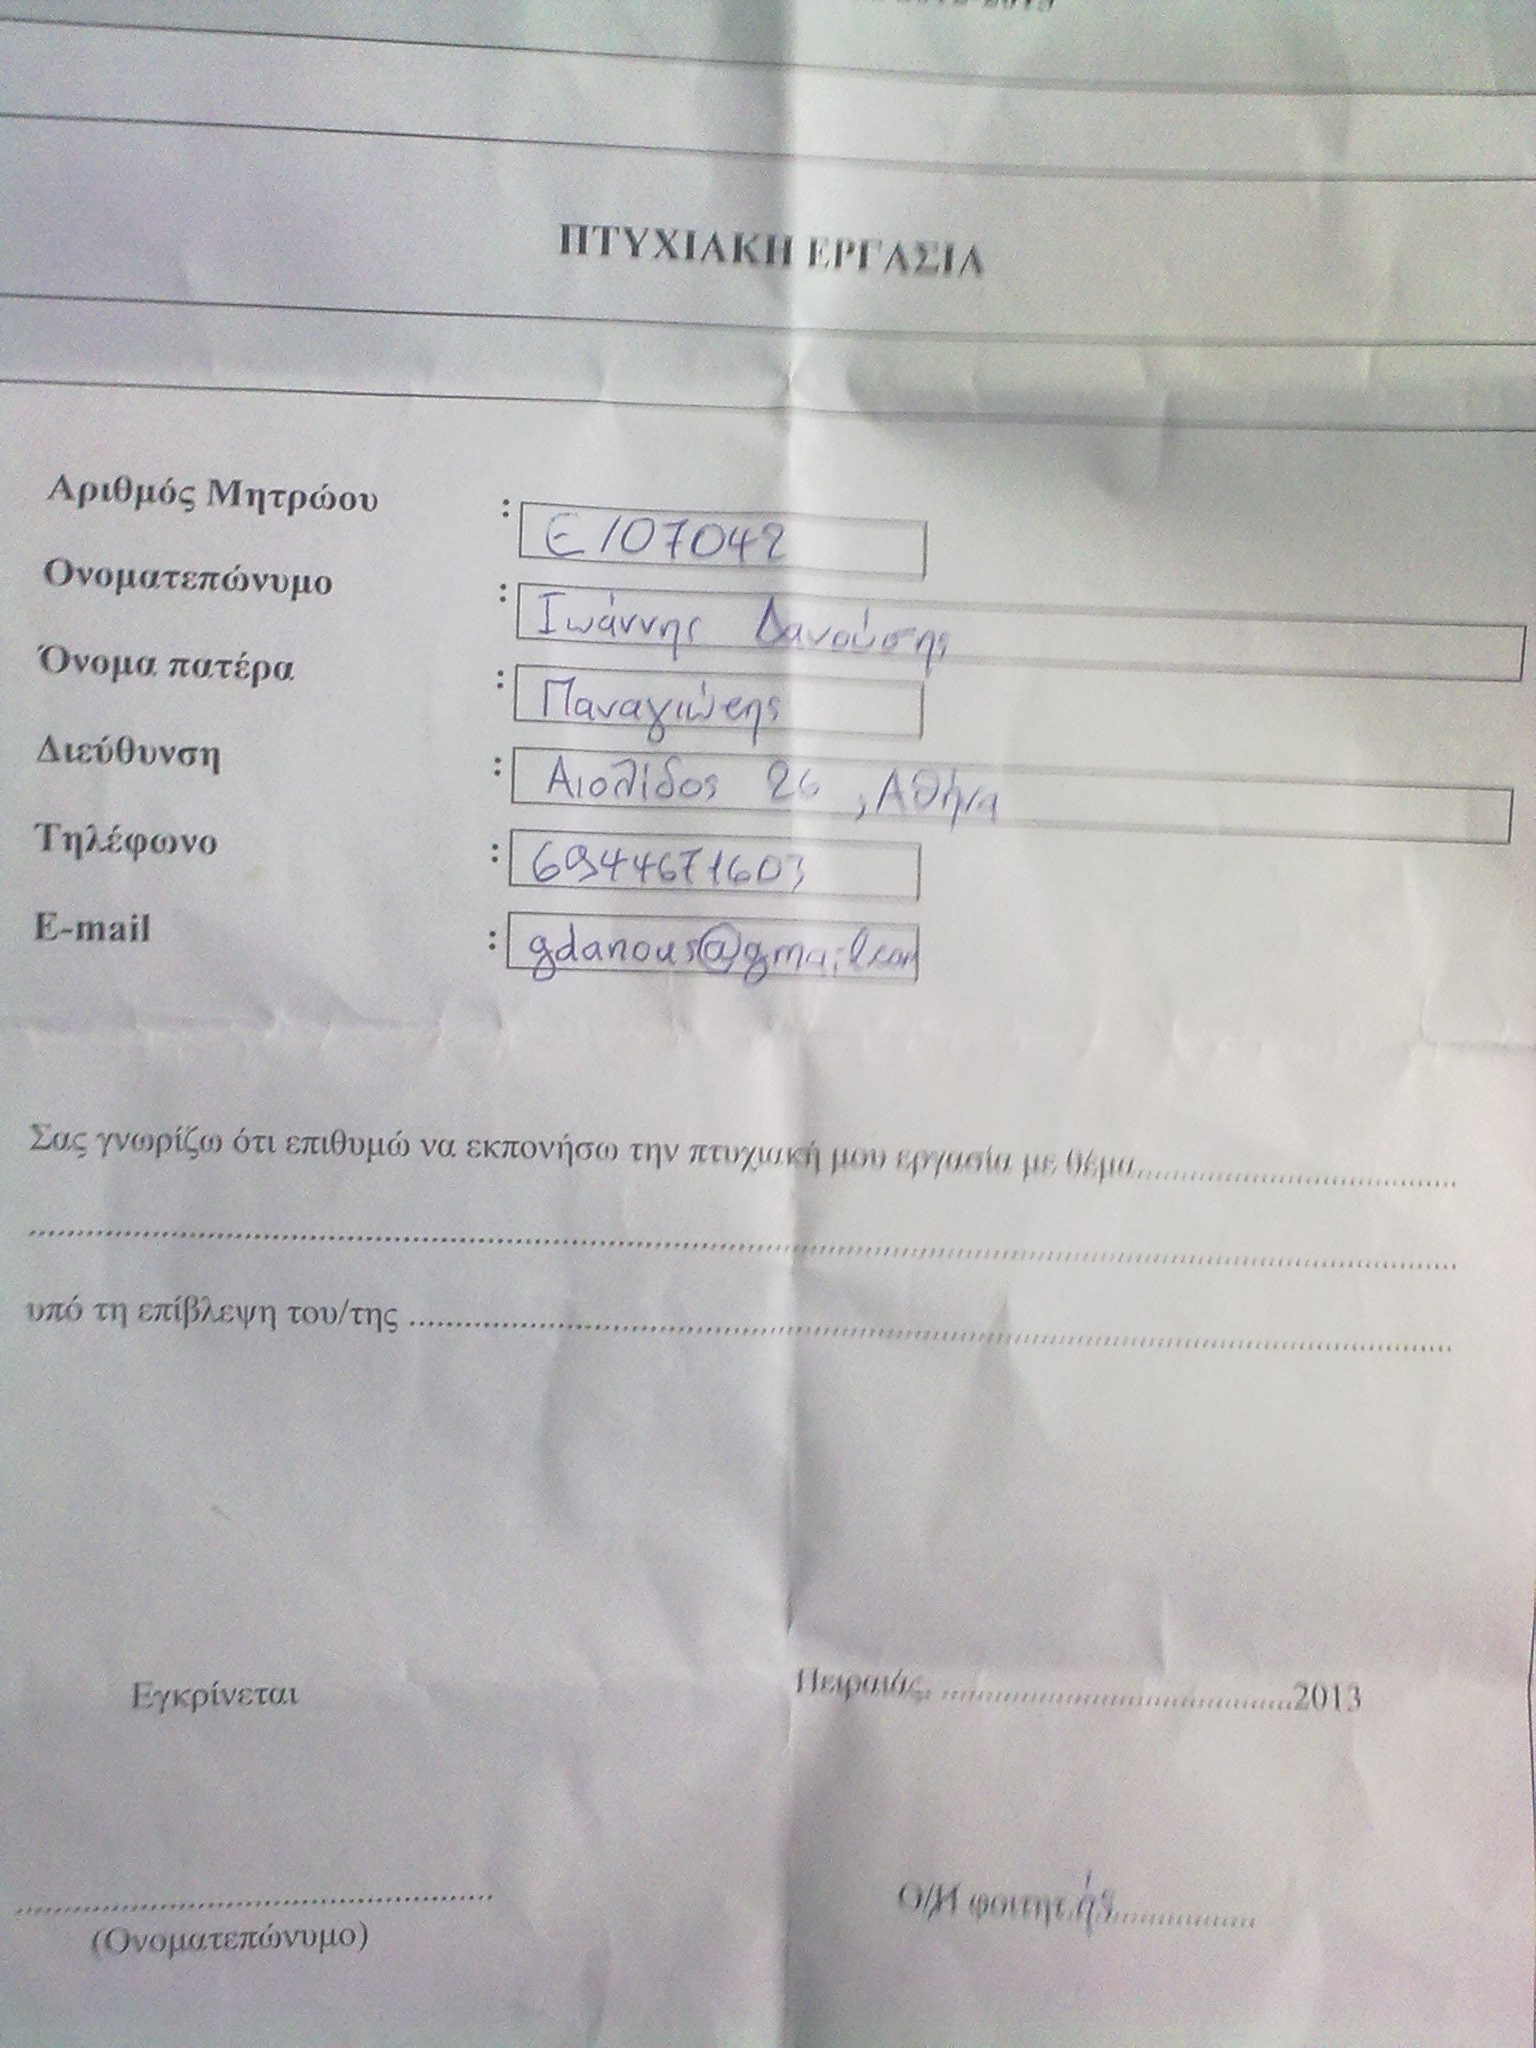 2012-2013
ΠΤΥΧΙΑΚΗ ΕΡΓΑΣΙΑ
Αριθμός Μητρώου : Ε107042
Ονοματεπώνυμο : Ιωάννης Δανούσης
Όνομα πατέρα : Παναγιώτης
Διεύθυνση : Αιολίδος 26 , Αθήνα
Τηλέφωνο : 6944671603
E-mail : gdanous@gmail.com
Σας γνωρίζω ότι επιθυμώ να εκπονήσω την πτυχιακή μου εργασία με θέμα..............................
....................................................................................................
υπό τη επίβλεψη του/της ....................................................................................................
Εγκρίνεται Πειραιάς, ........................................2013
.................................................. Ο/Η φοιτητ.ής..................
(Ονοματεπώνυμο)